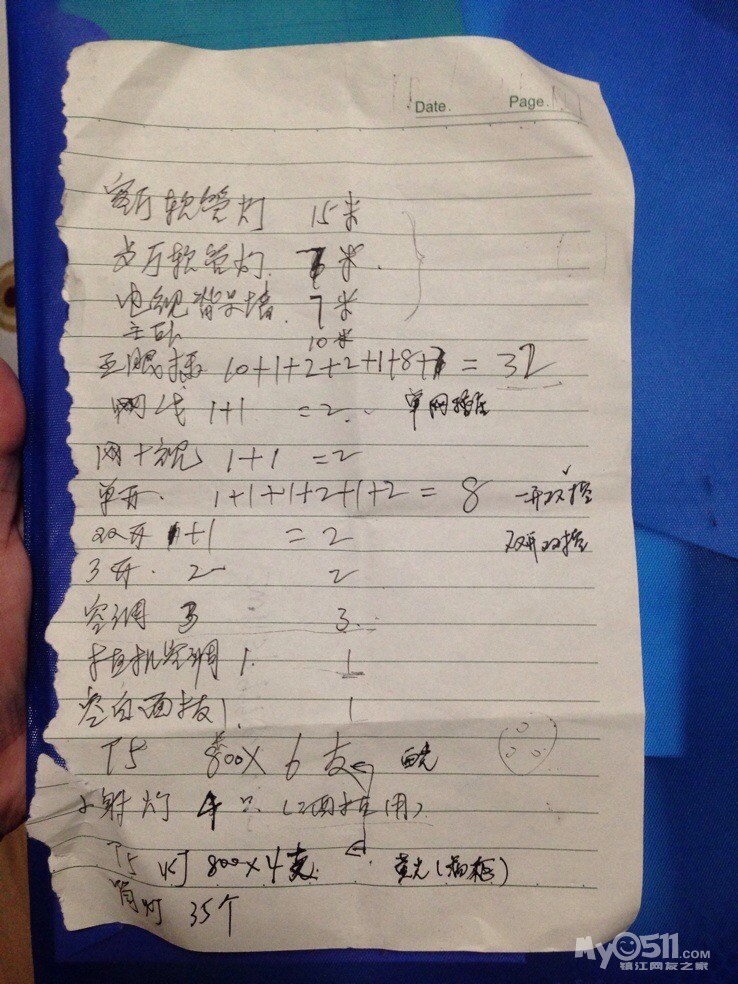 Date. Page.
客厅软管灯 15米
软管灯. 米.
电视背景墙. 7米
主卧 10米
五眼插 10+1+2+2+1+8+ = 32
网线 1+1 =2. 单网插座
网+视 1+1 =2
单开. 1+1+1+2+1+2 = 8 一开双控
双开 1+1 = 2 双开双控
3开. 2 2
空调 3 3.
挂机空调 1. 1
空白面板 1. 1
T5 800X 6支 白光
小射灯 4只 ( 用)
T5 灯 800×4支. 黄光( )
筒灯 35个
My0511.COM
镇江网友之家